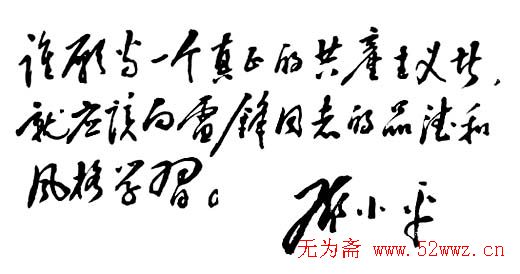 谁愿当一个真正的共产主义者，
就应该向雷锋同志的品德和
风格学习。
邓小平
无为斋 www.52wwz.cn